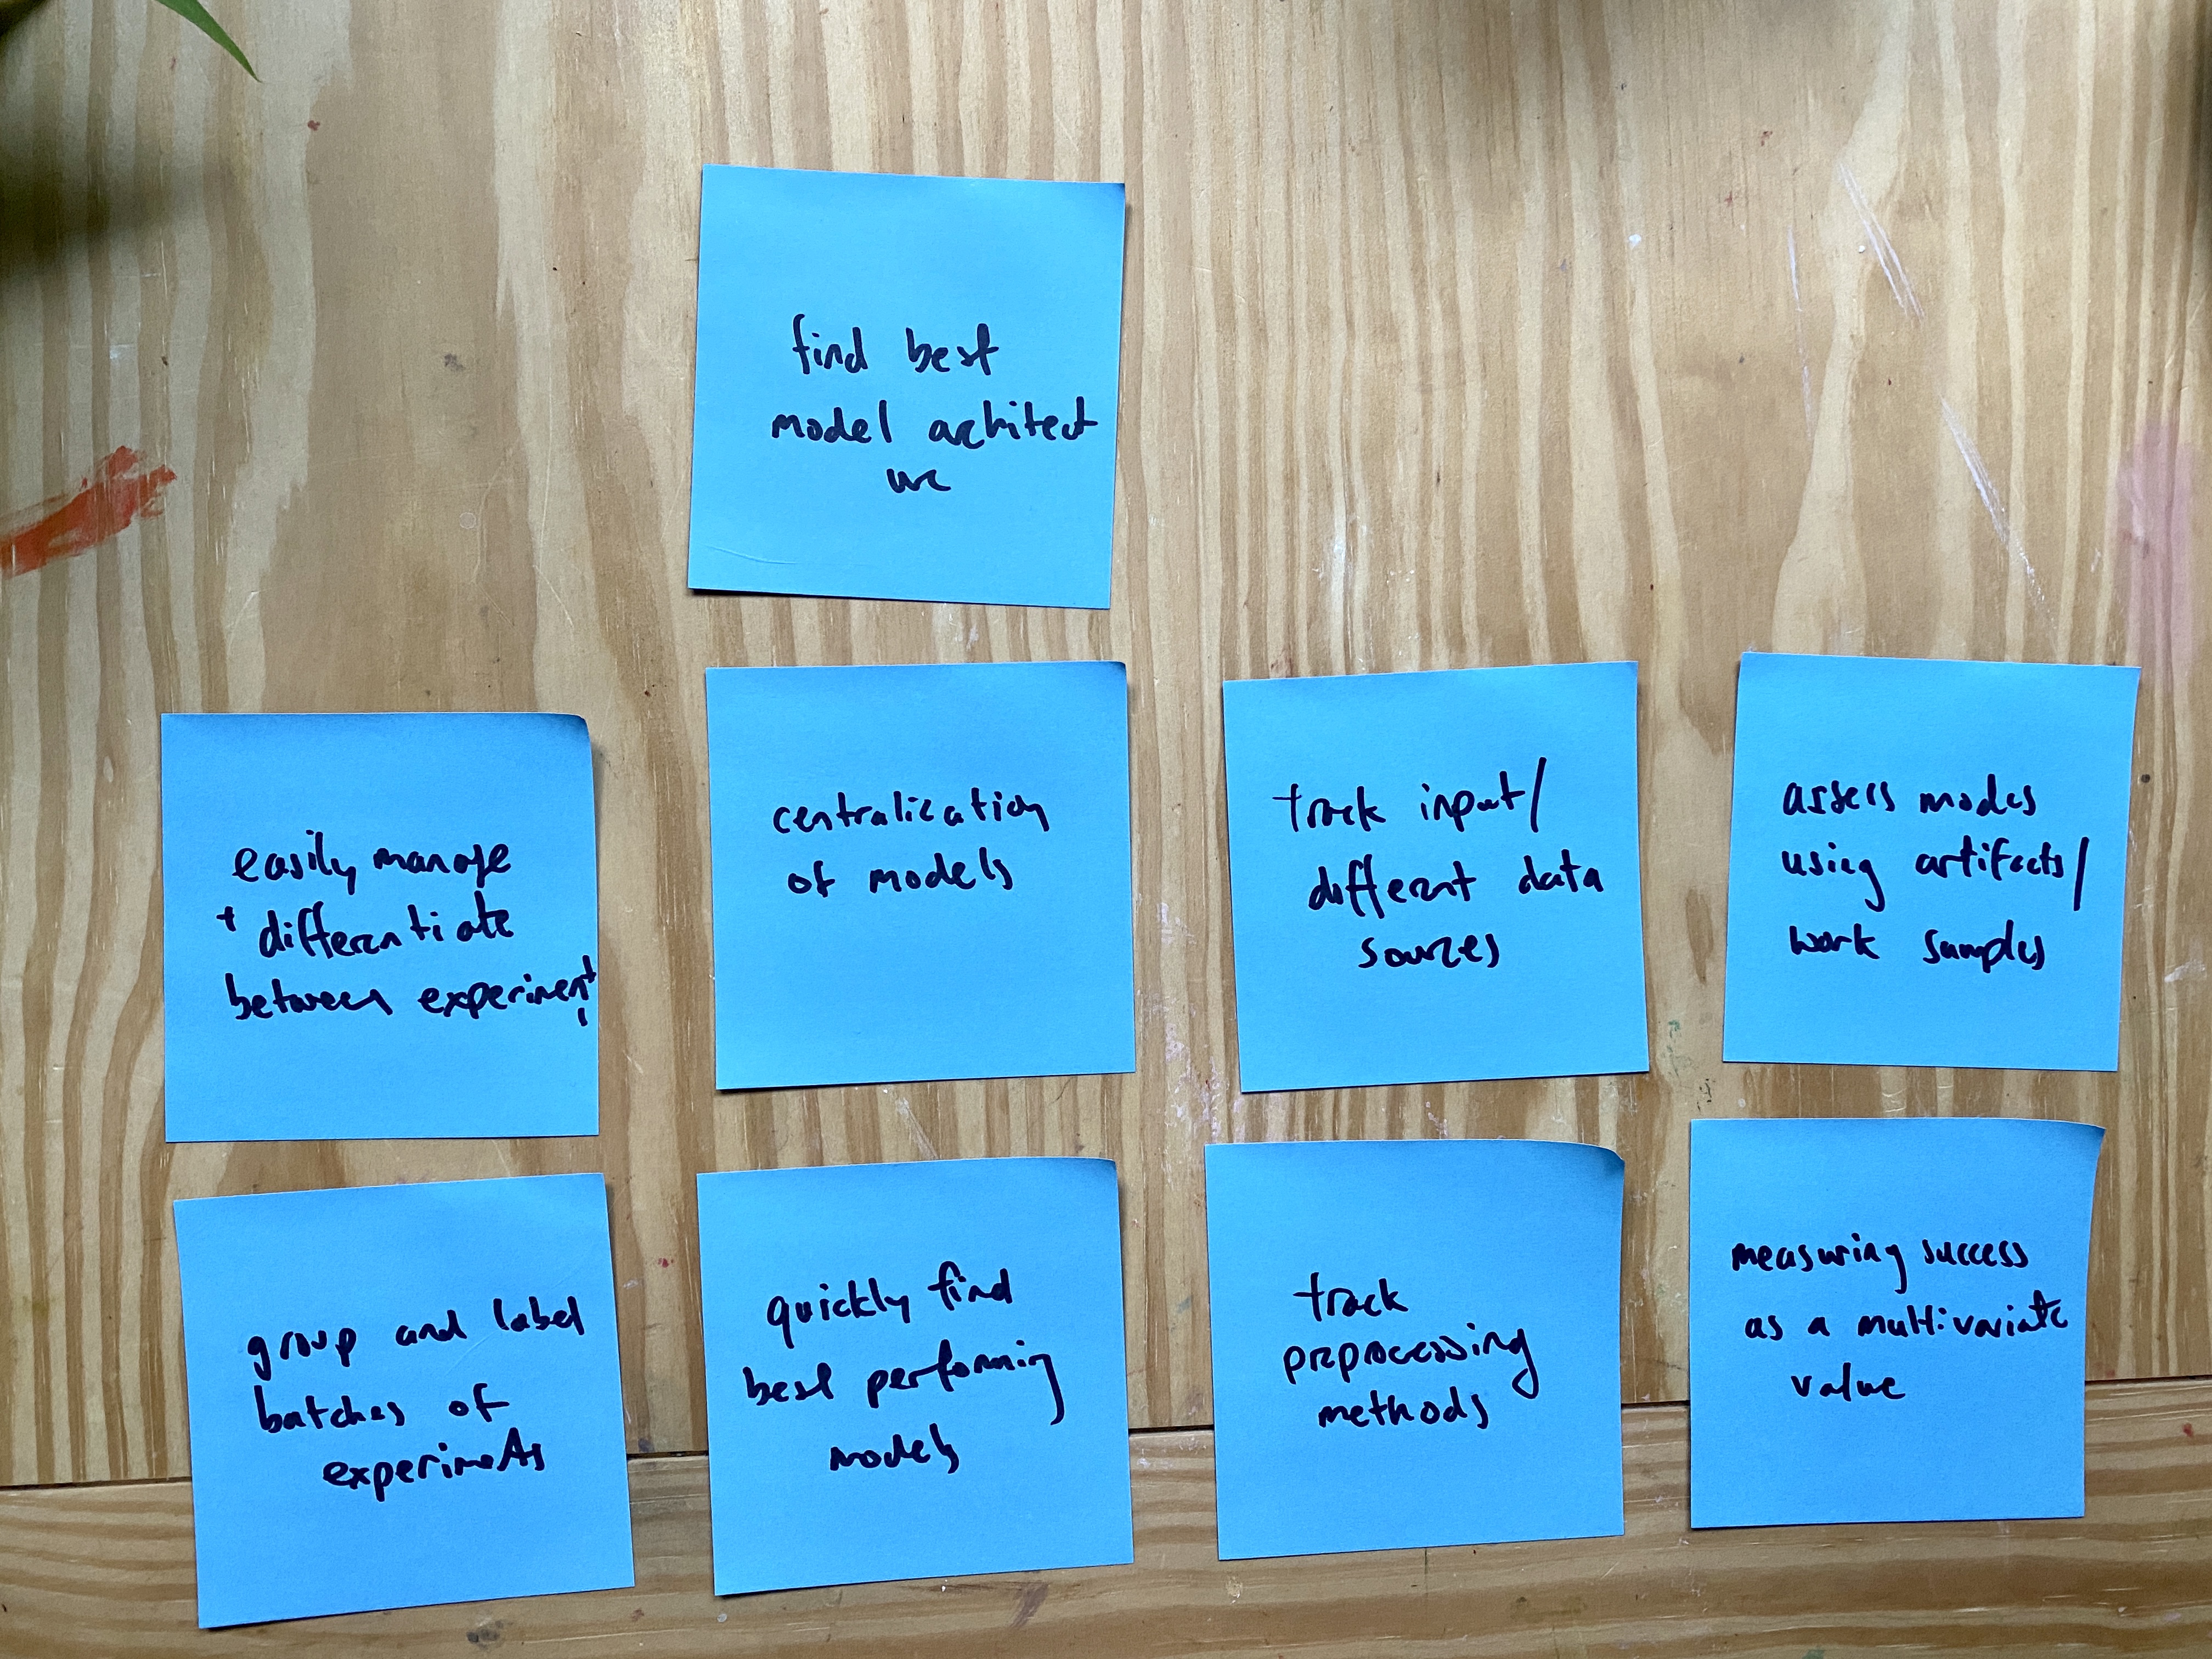 find best
model architect
ure
easily manage
+ differentiate
between experiment
s
centralization
of models
track input/
different data
sources
assess modes
using artifacts/
work samples
group and label
batches of
experiments
quickly find
best performing
models
track
preprocessing
methods
measuring success
as a multivariate
value